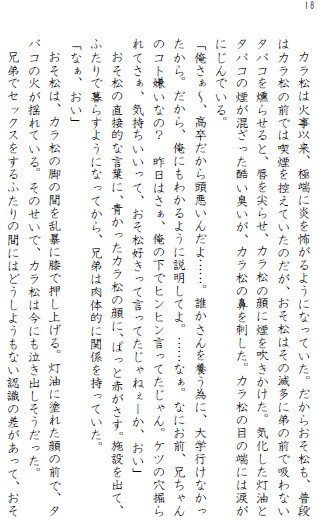 18
カラ松は火事以来、極端に炎を怖がるようになっていた。だからおそ松も、普段
はカラ松の前では喫煙を控えていたのだが、おそ松はその滅多に弟の前で吸わない
タバコを燻らせると、唇を尖らせ、カラ松の顔に煙を吹きかけた。気化した灯油と
タバコの煙が混ざった酷い臭いが、カラ松の鼻を刺した。カラ松の目の端には涙が
にじんでいる。
「俺さぁ～、高卒だから頭悪いんだよ……。誰かさんを養う為に、大学行けなかっ
たから。だから、俺にもわかるように説明してよ。……なぁ。なにお前、兄ちゃん
のコト嫌いなの？　昨日はさぁ、俺の下でヒンヒン言ってたじゃん。ケツの穴掘ら
れてさぁ、気持ちいいって、おそ松好きって言ってたじゃねぇーか、おい」
おそ松の直接的な言葉に、青かったカラ松の顔に、ぱっと赤がさす。施設を出て、
ふたりで暮らすようになってから、兄弟は肉体的に関係を持っていた。
「なぁ、おい」
おそ松は、カラ松の脚の間を乱暴に膝で押し上げる。灯油に塗れた顔の前で、タ
バコの火が揺れている。そのせいで、カラ松は今にも泣き出しそうだった。
兄弟でセックスをするふたりの間にはどうしようもない認識の差があって、おそ